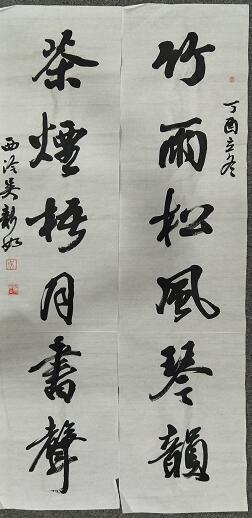 竹雨松風琴韻
丁酉立冬
茶煙梧月書聲
西泠吳